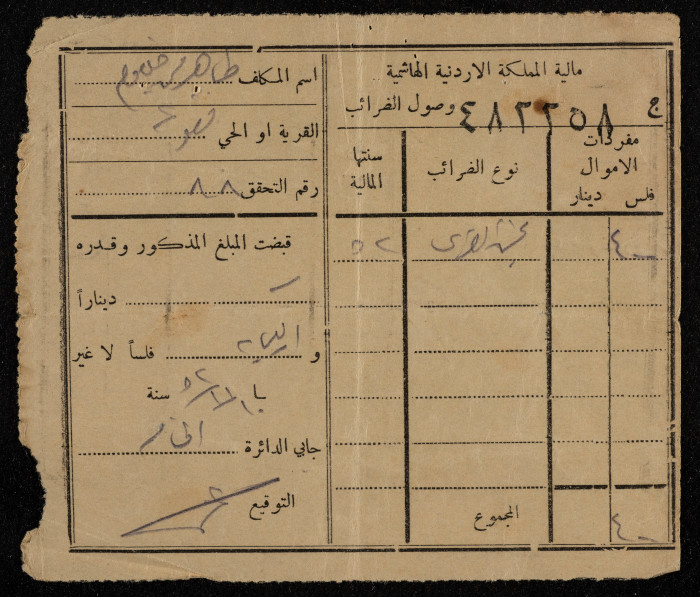 مالية المملكة الاردنية الهاشمية
ج ٤٨٢٢٥٨ وصول الضرائب
مفردات الاموال
فلس دينار
نوع الضرائب
سنتها المالية
٤٠
٥٢
المجموع
٤٠
اسم المكلف طاهر
القرية او الحي
رقم التحقق ٨٨
قبضت المبلغ المذكور وقدره
ديناراً
و فلساً لا غير
با سنة ٥٢
جابي الدائرة
التوقيع